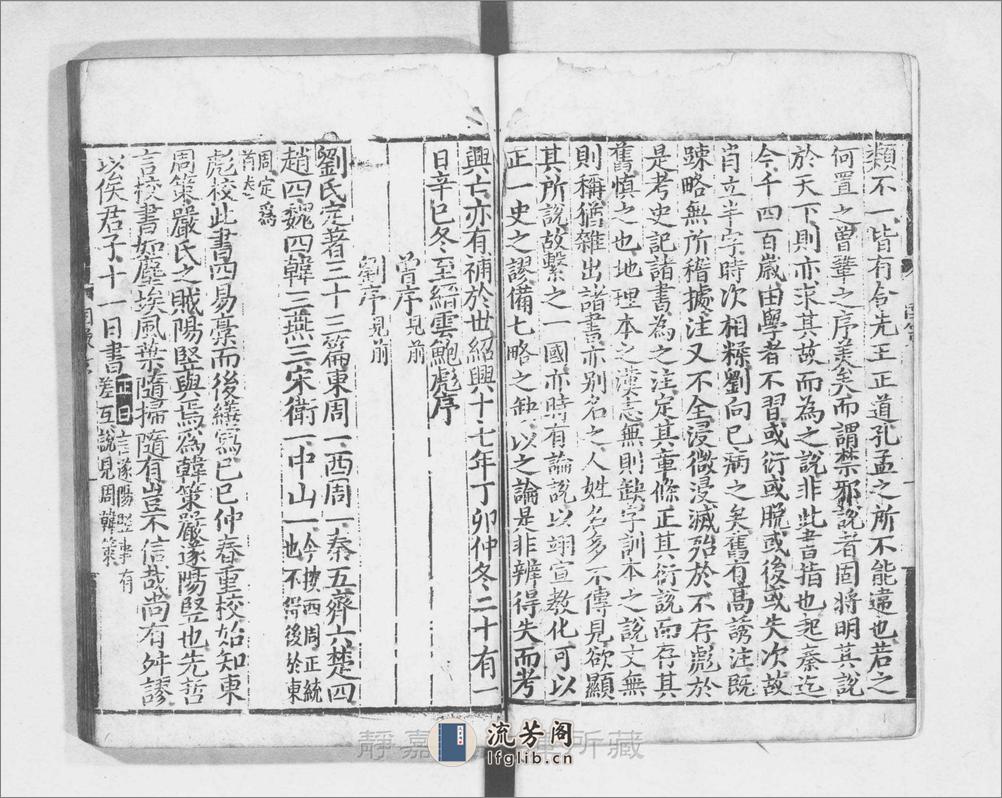 類不一皆有合先王正道孔孟之所不能違也若之
何置之曾鞏之序美矣而謂禁邪說者固將明其說
於天下則亦求其故而為之說非此書指也起秦迄
今千四百歲由學者不習或衍或脫或後或失次故
肖立半字時次相糅劉向已病之矣舊有高誘注既
踈略無所稽據注又不全浸微浸滅殆於不存彪於
是考史記諸書為之注定其章條正其衍說而存其
舊慎之也地理本之漢志無則缺字訓本之說文無
則稱猶雜出諸書亦別名之人姓名多不傳見欲顯
其所說故繫之一國亦時有論說以翊宣教化可以
正一史之謬備七略之缺以之論是非辨得失而考
興亡亦有補於世紹興十七年丁卯仲冬二十有一
日辛巳冬至縉雲鮑彪序
曾序見前
劉序見前
劉氏定著三十三篇東周一西周一秦五齊六楚四
趙四魏四韓三燕三宋衛一中山一今按西周正統
也不得後於東
周定為
首卷
彪校此書四易藁而後繕寫已巳仲春重校始知東
周策嚴氏之賊陽竪與焉為韓策嚴遂陽竪也先哲
言校書如塵埃風葉隨掃隨有豈不信哉尚有舛謬
以俟君子十一日書正曰言遂陽竪事有
差互說見周韓策
靜嘉
所藏
流芳阁
lfglib.cn